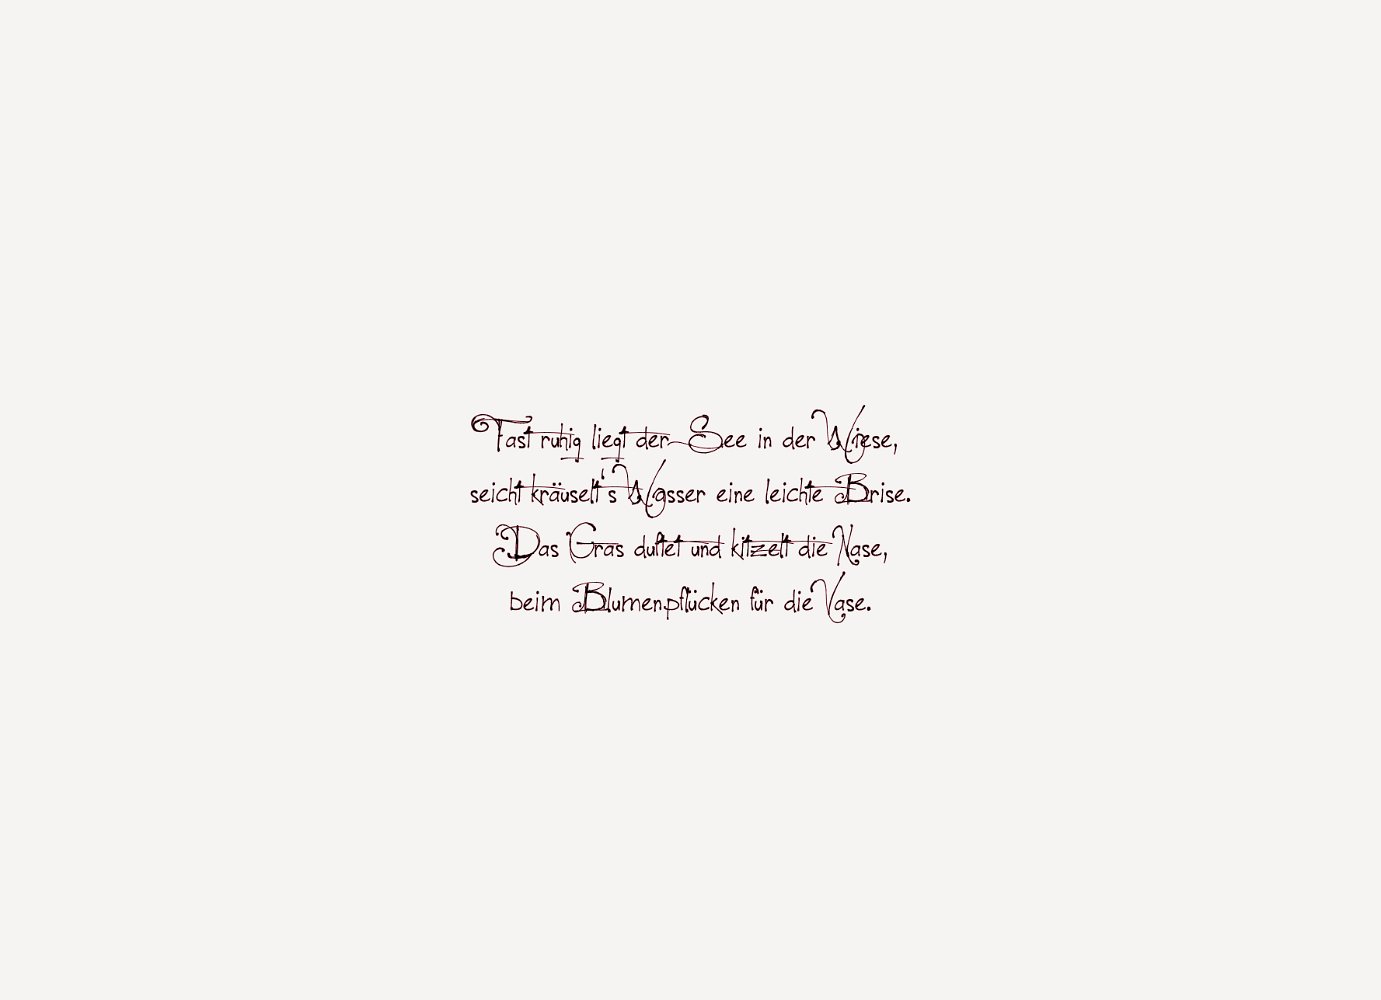 Fast ruhig liegt der See in der Wiese,
seicht kräuselt's Wasser eine leichte Brise.
Das Gras duftet und kitzelt die Nase,
beim Blumenpflücken für die Vase.